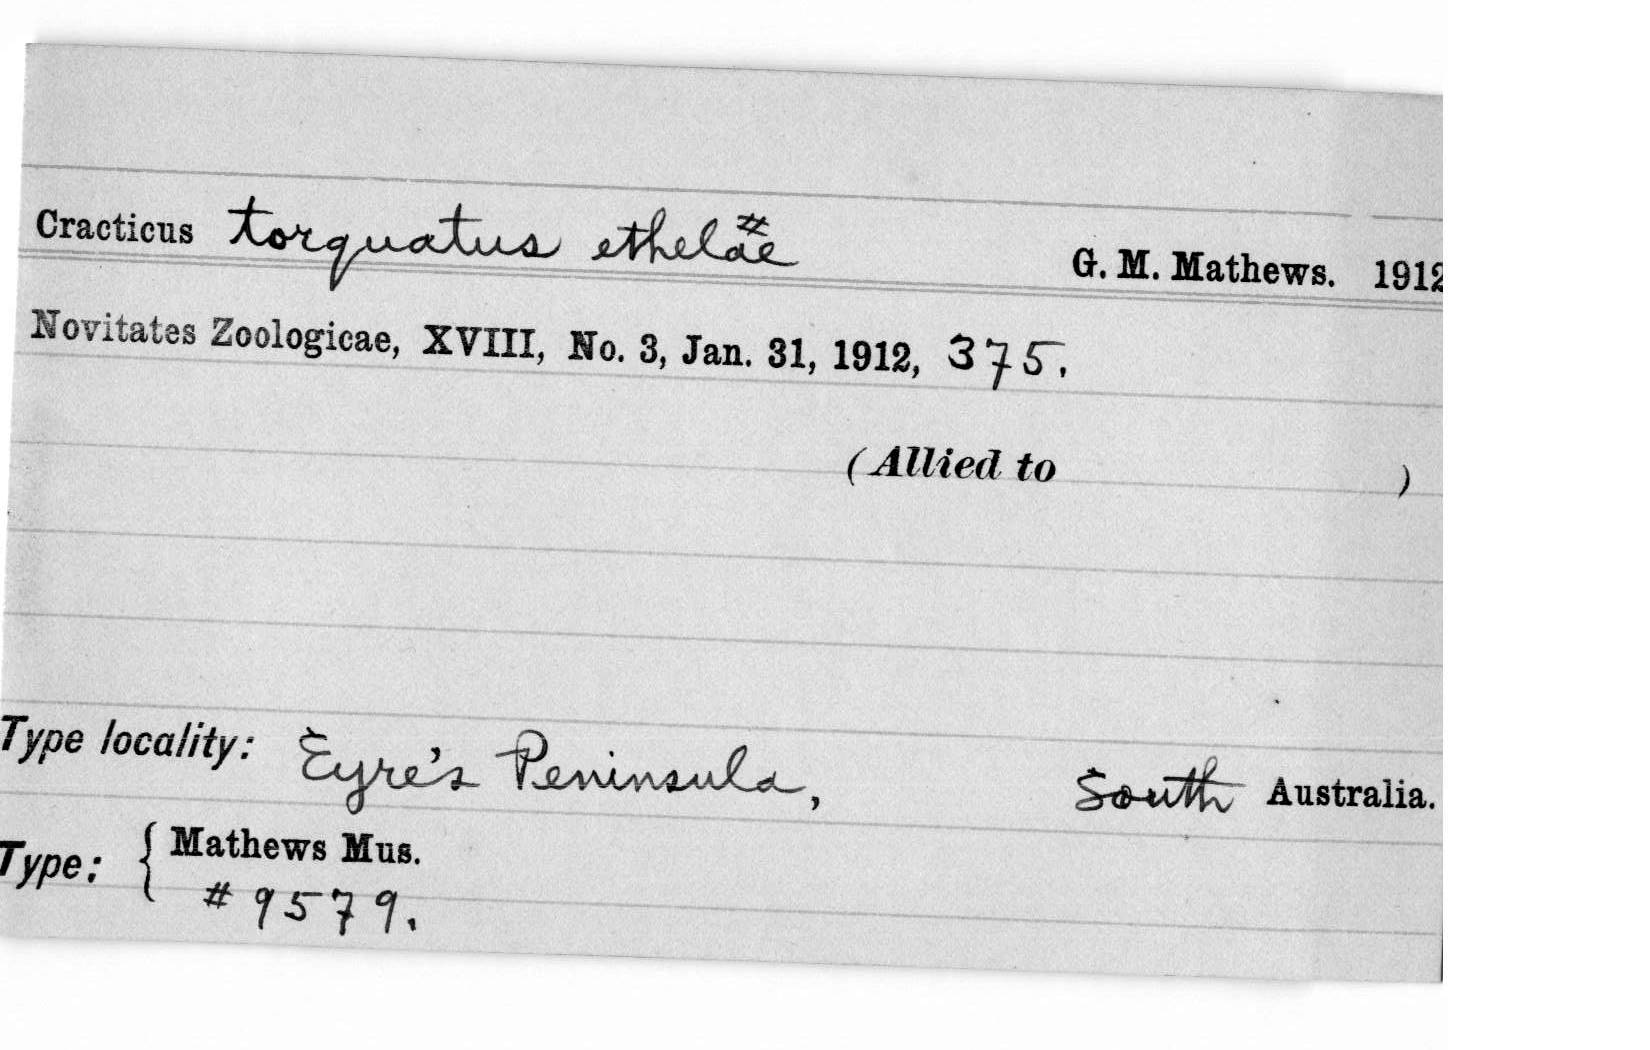 Cracticus torquatus ethelae # G. M. Mathews. 1912
Novitates Zoologicae, XVIII, No. 3, Jan. 31, 1912, 375.
(Allied to )
Type locality: Eyre's Peninsula, South Australia.
Type: { Mathews Mus.
# 9579.